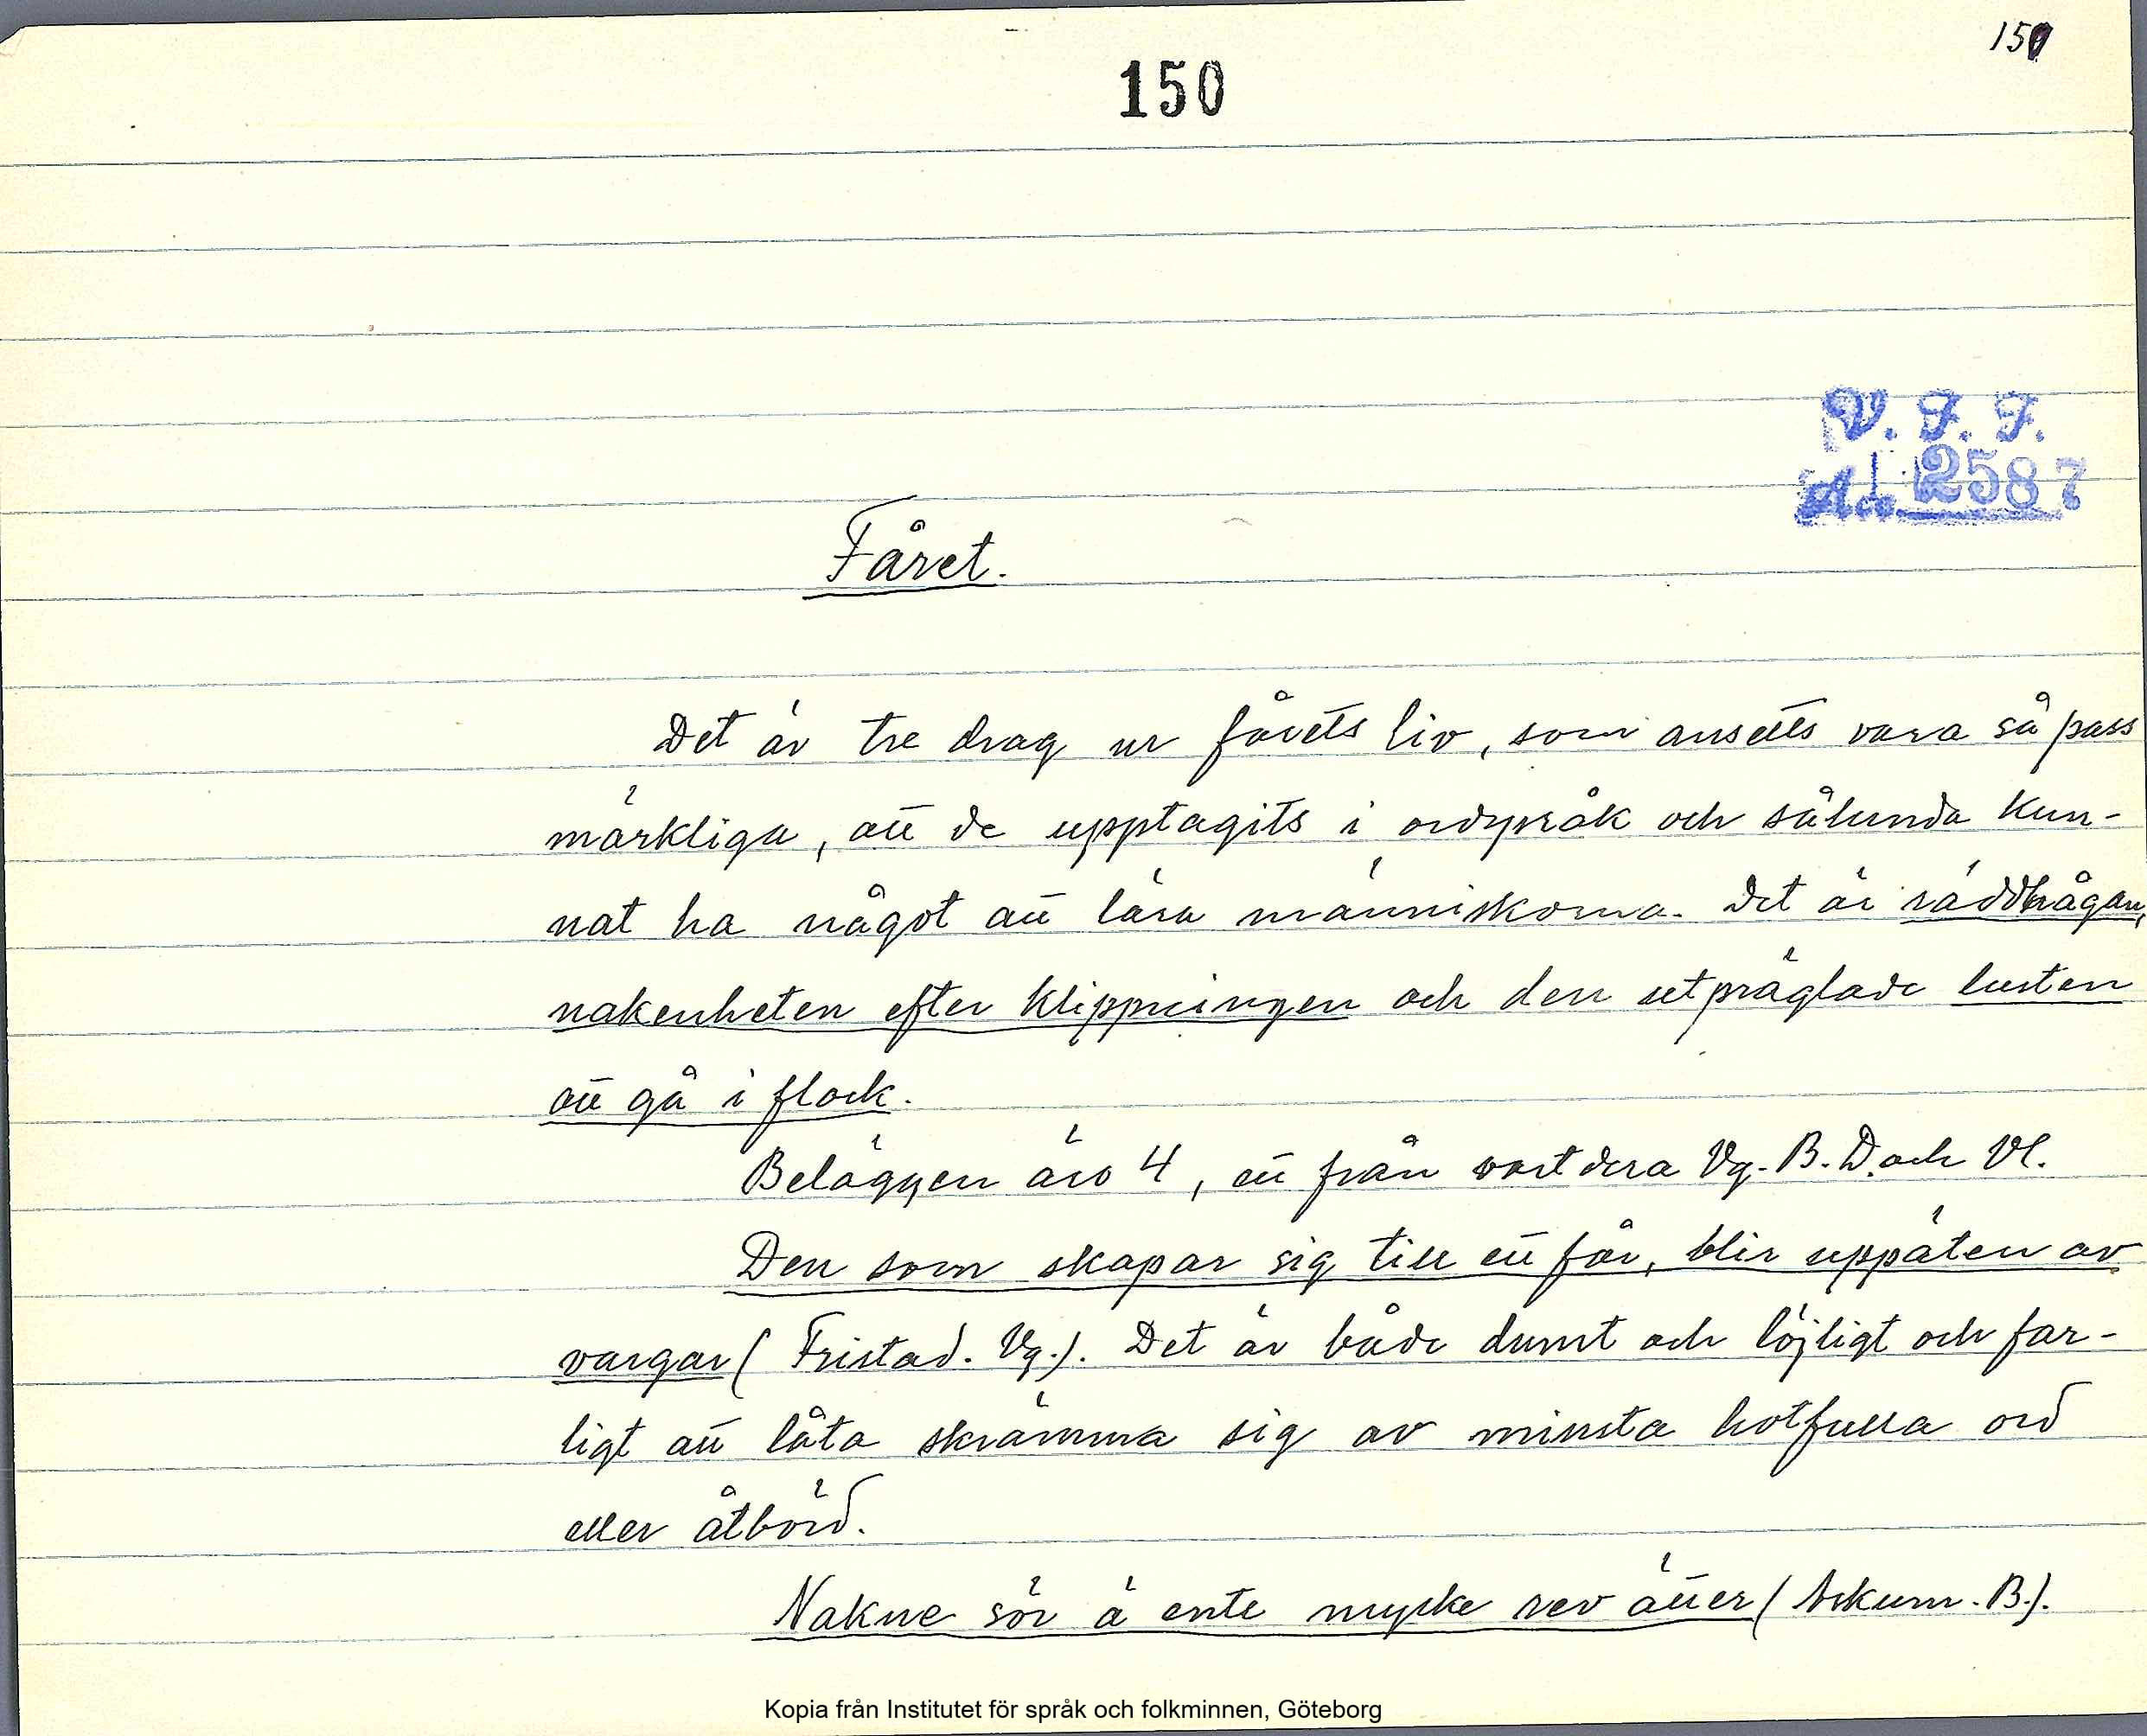 150
150
V. F. F.
Acc. 2587
Fåret.
Det är tre drag ur fårets liv, som ansetts vara så pass
märkliga, att de upptagits i ordspråk och sålunda kun-
nat ha något att lära människorna. Det är räddhågan,
nakenheten efter klippningen och den utpräglade lusten
att gå i flock.
Beläggen äro 4, ett från vart dera Vg. B. D. och Vl.
Den som skapar sig till ett får, blir uppäten av
vargar (Fristad. Vg.). Det är både dumt och löjligt och far-
ligt att låta skrämma sig av minsta hotfulla ord
eller åtbörd.
Nakne sör ä ente mycke rev ätter (Askum. B.).
Kopia från Institutet för språk och folkminnen, Göteborg